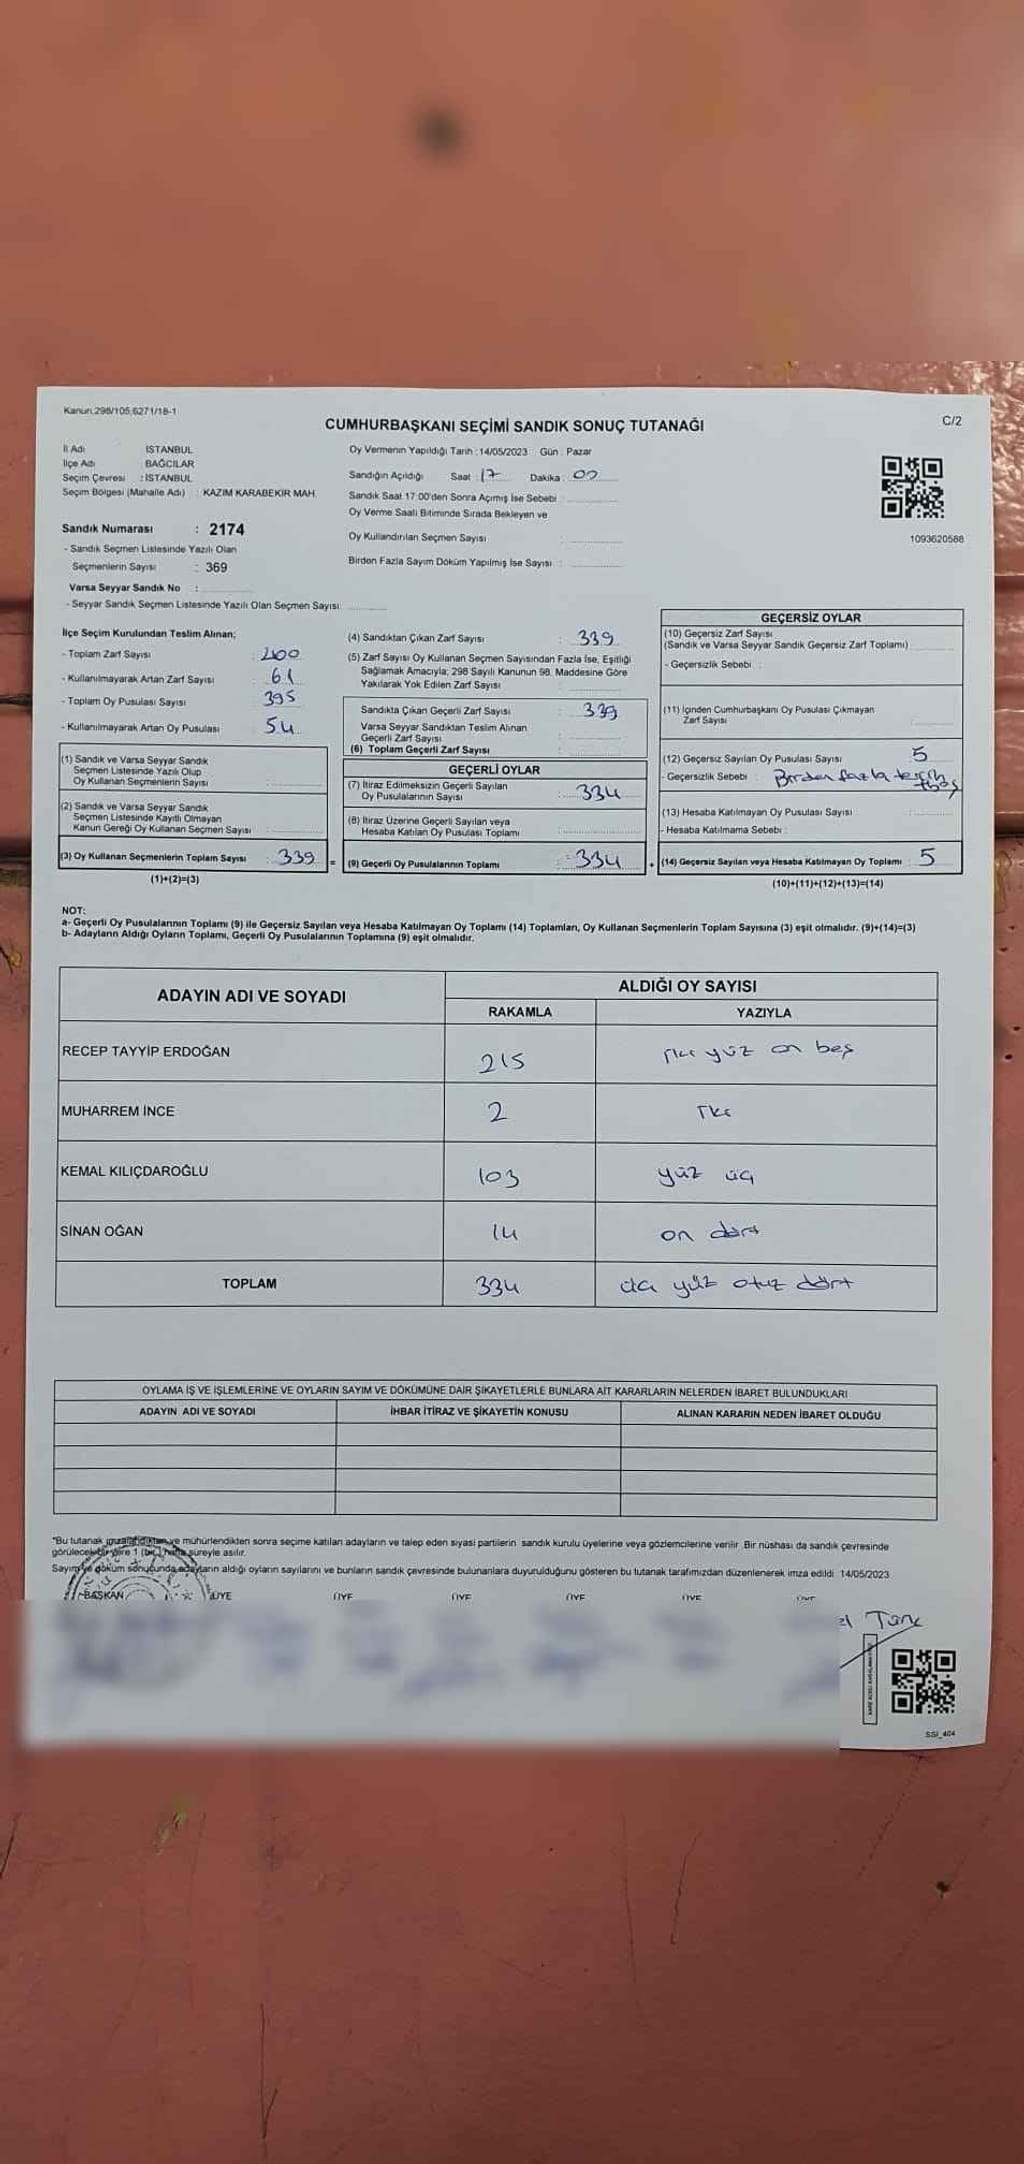 Kanun.298/105,6271/18-1
C/2
CUMHURBAŞKANI SEÇİMİ SANDIK SONUÇ TUTANAĞI
İl Adı İSTANBUL
İlçe Adı BAĞCILAR
Seçim Çevresi : İSTANBUL
Seçim Bölgesi (Mahalle Adı) : KAZIM KARABEKİR MAH.
Sandık Numarası : 2174
- Sandık Seçmen Listesinde Yazılı Olan
Seçmenlerin Sayısı : 369
Varsa Seyyar Sandık No :
- Seyyar Sandık Seçmen Listesinde Yazılı Olan Seçmen Sayısı:
Oy Vermenin Yapıldığı Tarih : 14/05/2023 Gün : Pazar
Sandığın Açıldığı Saat : 17 Dakika : 00
Sandık Saat 17:00'den Sonra Açılmış İse Sebebi :
Oy Verme Saati Bitiminde Sırada Bekleyen ve
Oy Kullandırılan Seçmen Sayısı :
Birden Fazla Sayım Döküm Yapılmış İse Sayısı :
1093620588
İlçe Seçim Kurulundan Teslim Alınan;
- Toplam Zarf Sayısı : 400
- Kullanılmayarak Artan Zarf Sayısı : 61
- Toplam Oy Pusulası Sayısı : 395
- Kullanılmayarak Artan Oy Pusulası : 54
(1) Sandık ve Varsa Seyyar Sandık
Seçmen Listesinde Yazılı Olup
Oy Kullanan Seçmenlerin Sayısı :
(2) Sandık ve Varsa Seyyar Sandık
Seçmen Listesinde Kayıtlı Olmayan
Kanun Gereği Oy Kullanan Seçmen Sayısı :
(3) Oy Kullanan Seçmenlerin Toplam Sayısı : 339
(1)+(2)=(3)
(4) Sandıktan Çıkan Zarf Sayısı : 339
(5) Zarf Sayısı Oy Kullanan Seçmen Sayısından Fazla İse, Eşitliği
Sağlamak Amacıyla; 298 Sayılı Kanunun 98. Maddesine Göre
Yakılarak Yok Edilen Zarf Sayısı :
Sandıkta Çıkan Geçerli Zarf Sayısı : 339
Varsa Seyyar Sandıktan Teslim Alınan
Geçerli Zarf Sayısı :
(6) Toplam Geçerli Zarf Sayısı
GEÇERLİ OYLAR
(7) İtiraz Edilmeksizin Geçerli Sayılan
Oy Pusulalarının Sayısı : 334
(8) İtiraz Üzerine Geçerli Sayılan veya
Hesaba Katılan Oy Pusulası Toplamı :
= (9) Geçerli Oy Pusulalarının Toplamı : 334
GEÇERSİZ OYLAR
(10) Geçersiz Zarf Sayısı
(Sandık ve Varsa Seyyar Sandık Geçersiz Zarf Toplamı) :
- Geçersizlik Sebebi :
(11) İçinden Cumhurbaşkanı Oy Pusulası Çıkmayan
Zarf Sayısı
(12) Geçersiz Sayılan Oy Pusulası Sayısı : 5
- Geçersizlik Sebebi : Birden fazla tercih
(13) Hesaba Katılmayan Oy Pusulası Sayısı :
- Hesaba Katılmama Sebebi :
+ (14) Geçersiz Sayılan veya Hesaba Katılmayan Oy Toplamı : 5
(10)+(11)+(12)+(13)=(14)
NOT:
a- Geçerli Oy Pusulalarının Toplamı (9) ile Geçersiz Sayılan veya Hesaba Katılmayan Oy Toplamı (14) Toplamları, Oy Kullanan Seçmenlerin Toplam Sayısına (3) eşit olmalıdır. (9)+(14)=(3)
b- Adayların Aldığı Oyların Toplamı, Geçerli Oy Pusulalarının Toplamına (9) eşit olmalıdır.
ADAYIN ADI VE SOYADI
ALDIĞI OY SAYISI
RAKAMLA YAZIYLA
RECEP TAYYİP ERDOĞAN 215 iki yüz on beş
MUHARREM İNCE 2 iki
KEMAL KILIÇDAROĞLU 103 yüz üç
SİNAN OĞAN 14 on dört
TOPLAM 334 üç yüz otuz dört
OYLAMA İŞ VE İŞLEMLERİNE VE OYLARIN SAYIM VE DÖKÜMÜNE DAİR ŞİKAYETLERLE BUNLARA AİT KARARLARIN NELERDEN İBARET BULUNDUKLARI
ADAYIN ADI VE SOYADI İHBAR İTİRAZ VE ŞİKAYETİN KONUSU ALINAN KARARIN NEDEN İBARET OLDUĞU
"Bu tutanak imzalandıktan ve mühürlendikten sonra seçime katılan adayların ve talep eden siyasi partilerin sandık kurulu üyelerine veya gözlemcilerine verilir. Bir nüshası da sandık çevresinde
görülecek bir yere 1 (bir) hafta süreyle asılır.
Sayım ve döküm sonucunda adayların aldığı oyların sayılarını ve bunların sandık çevresinde bulunanlara duyurulduğunu gösteren bu tutanak tarafımızdan düzenlenerek imza edildi. 14/05/2023
BAŞKAN ÜYE ÜYE ÜYE ÜYE ÜYE ÜYE
SSI_404